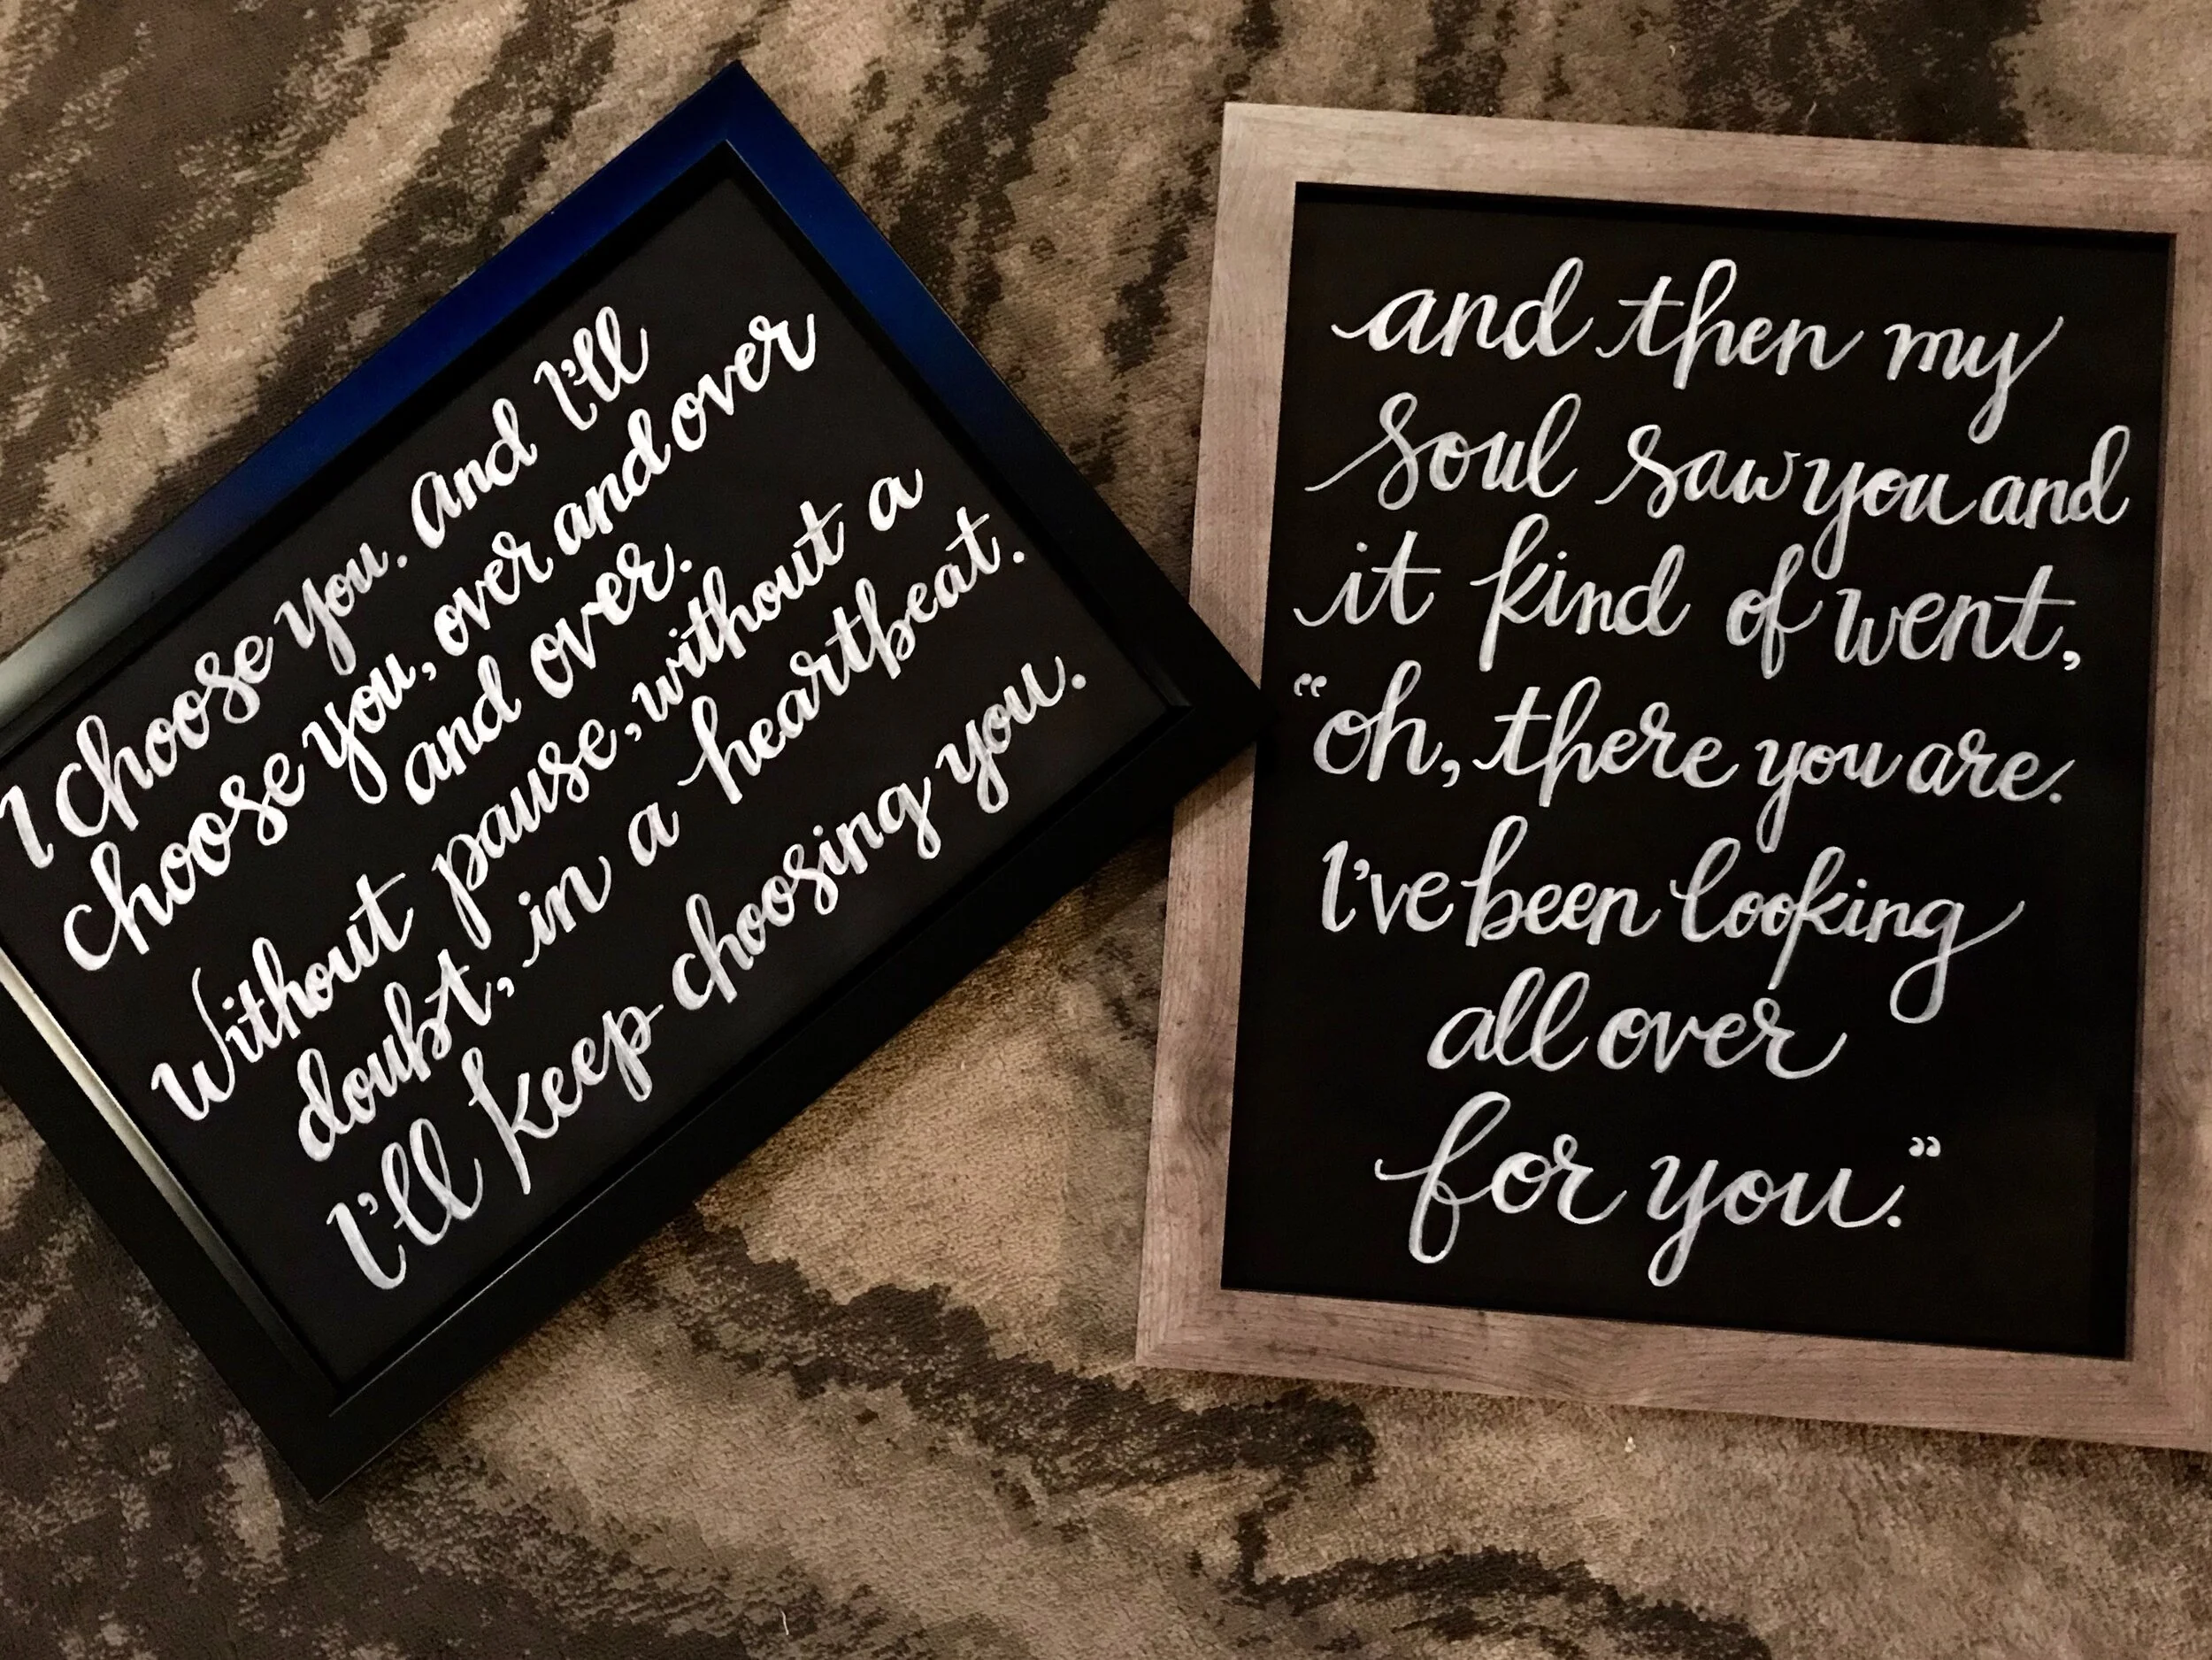 I choose you. And I'll
choose you, over and over
and over.
Without pause, without a
doubt, in a heartbeat.
I'll keep choosing you.
and then my
soul saw you and
it kind of went,
“oh, there you are.
I've been looking
all over
for you.”